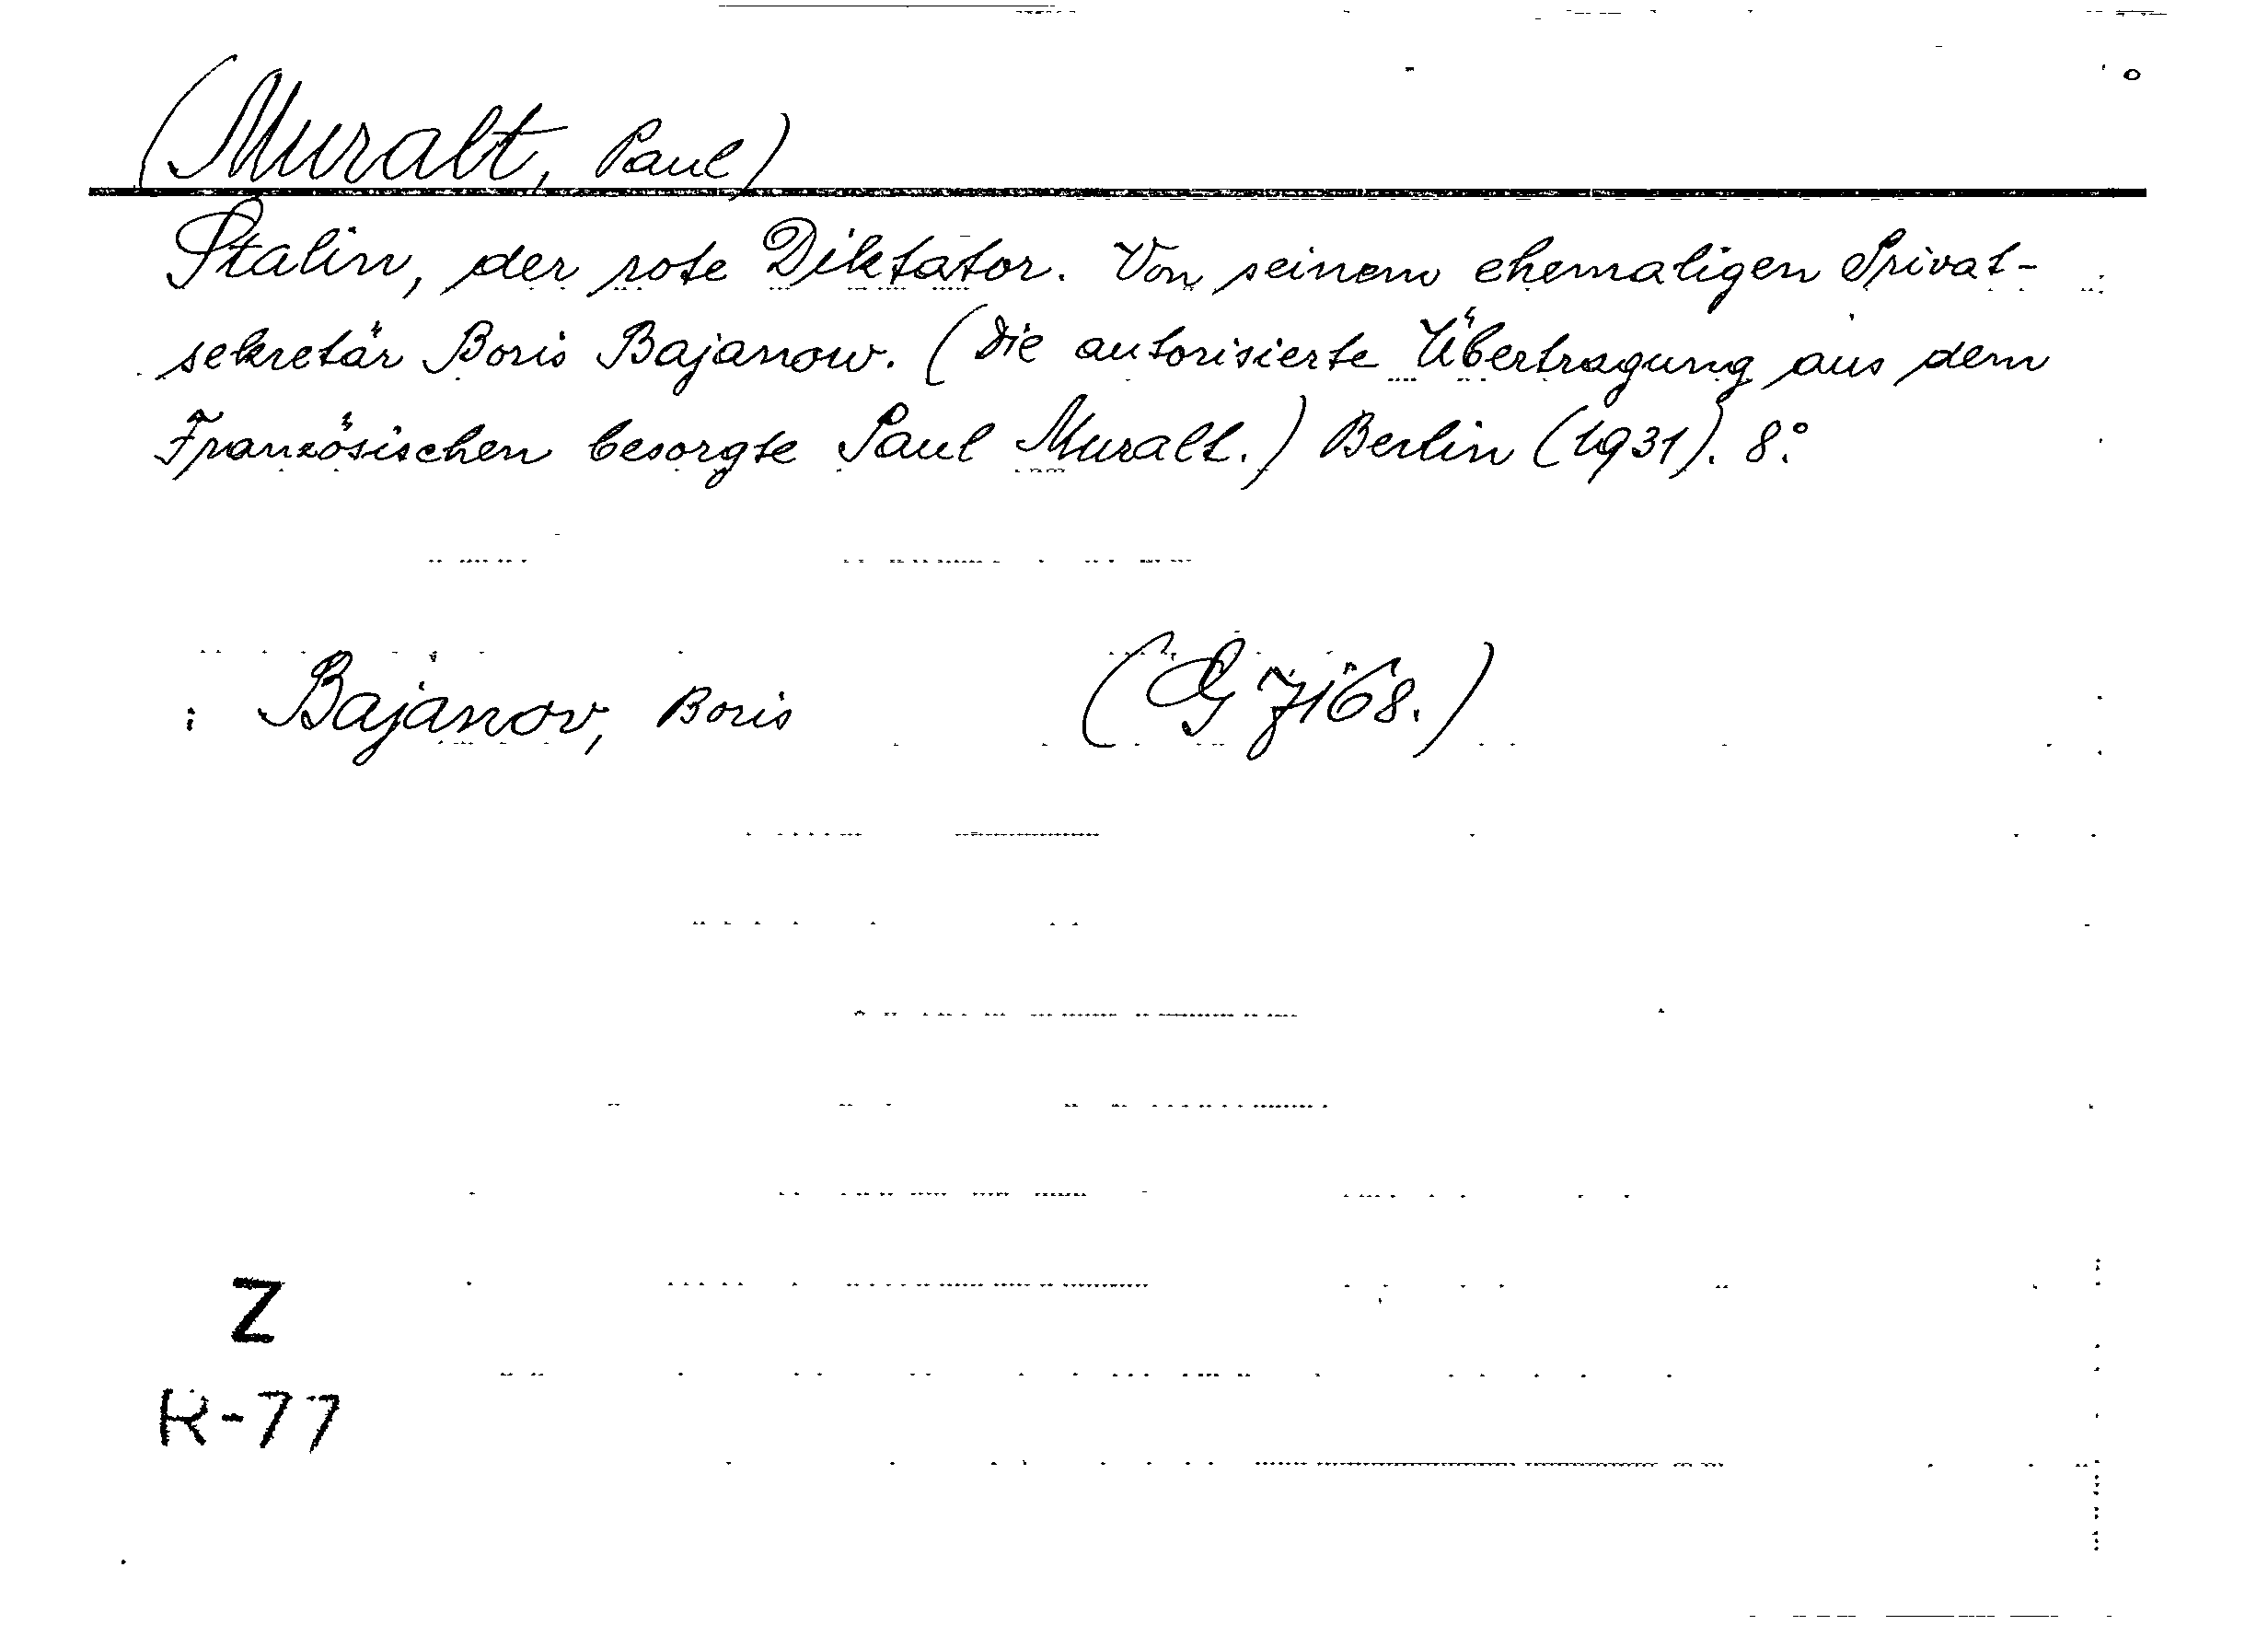 (Muralt, Paul)
Stalin, der rote Diktator. Von seinem ehemaligen Privat-
sekretär Boris Bajanow. (Die autorisierte Übertragung aus dem
Französischen besorgte Paul Muralt.) Berlin (1931). 8°.
: Bajanov, Boris (G 7168.)
Z
K-77